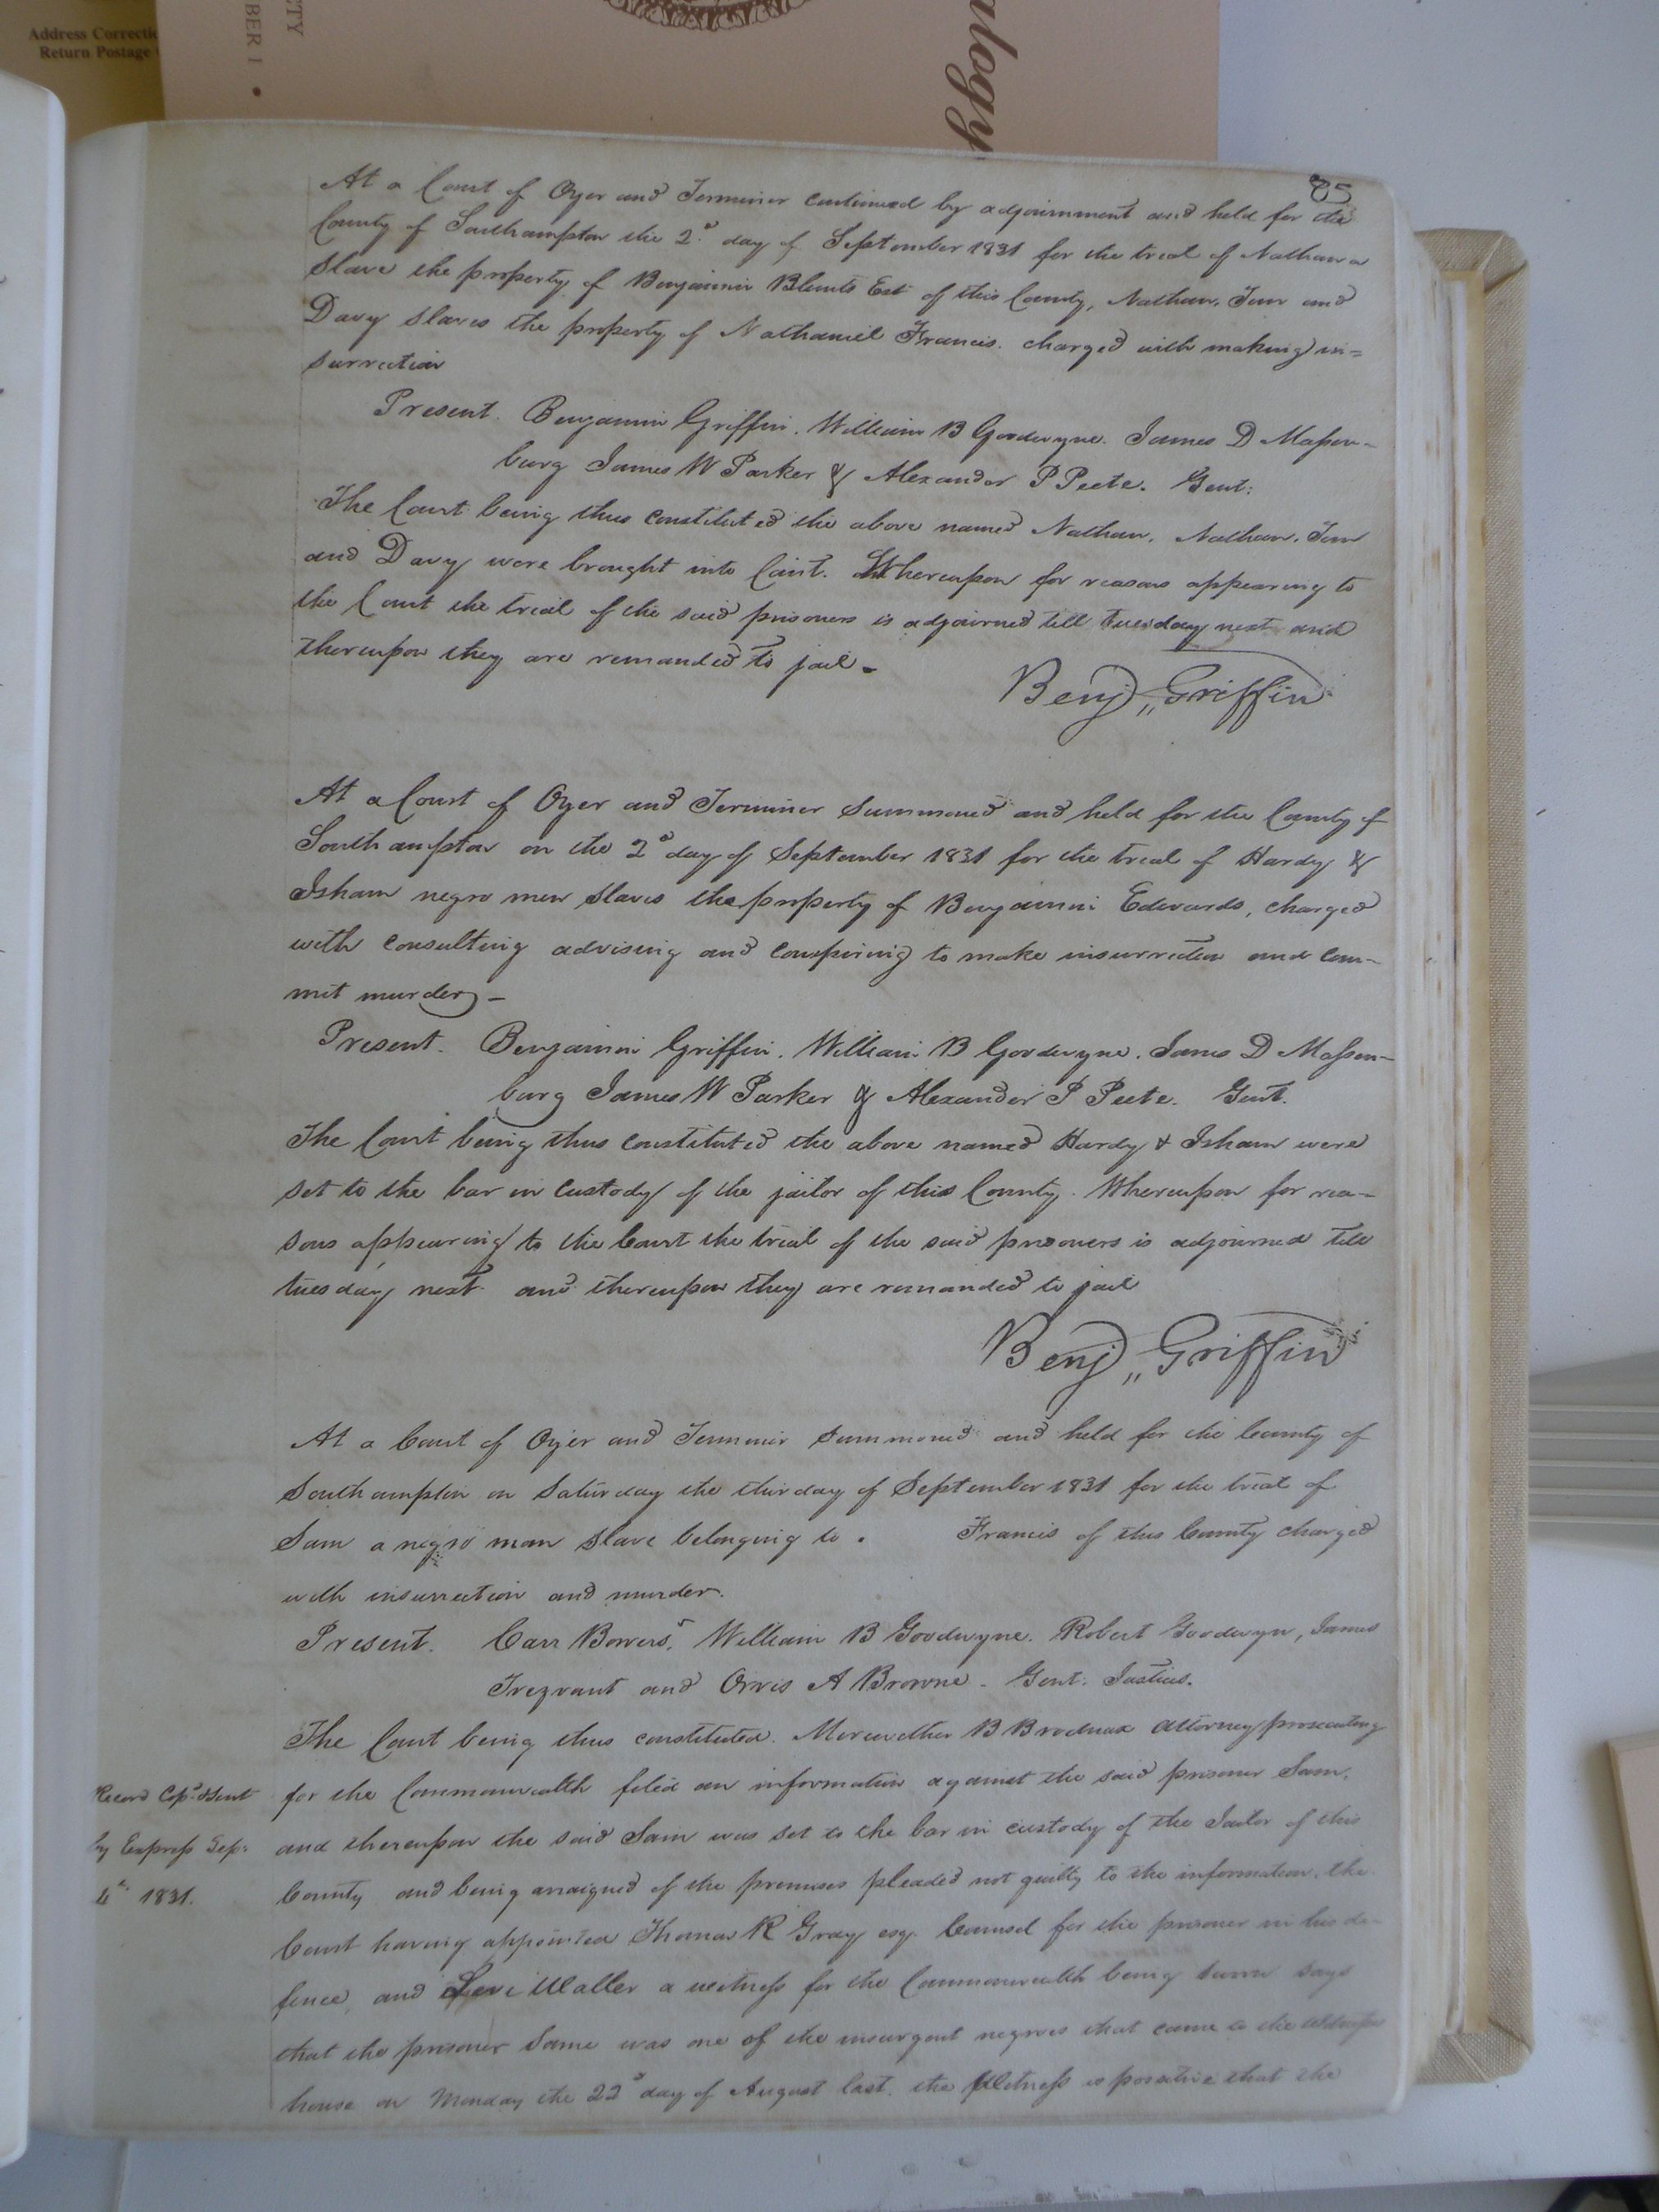 Address Correctio
Return Postage
CTY
BER 1 •
ulogy
85
At a Court of Oyer and Terminer continued by adjournment and held for the
County of Southampton the 2d day of September 1831 for the trial of Nathan a
Slave the property of Benjamin Blunts Est of this County, Nathan, Tom and
Davy slaves the property of Nathaniel Francis. charged with making in=
surrection
Present. Benjamin Griffin. William B Goodwyne. James D Massen-
burg James W Parker & Alexander P Peete. Gent:
The Court being thus constituted the above named Nathan. Nathan. Tom
and Davy were brought into Court. Whereupon for reasons appearing to
the Court the trial of the said prisoners is adjourned till tuesday next and
thereupon they are remanded to jail -
Benj,, Griffin
At a Court of Oyer and Terminer Summoned and held for the County of
Southampton on the 2d day of September 1831 for the trial of Hardy &
Isham negro men slaves the property of Benjamin Edwards, charged
with consulting advising and conspiring to make insurrection and com-
mit murder -
Present. Benjamin Griffin. William B Goodwyne. James D Massen-
burg James W Parker & Alexander P Peete. Gent.
The Court being thus constituted the above named Hardy & Isham were
set to the bar in custody of the jailor of this County. Whereupon for rea-
sons appearing to the Court the trial of the said prisoners is adjourned till
tuesday next and thereupon they are remanded to jail
Benj,, Griffin
At a Court of Oyer and Terminer summoned and held for the County of
Southampton on Saturday the third day of September 1831 for the trial of
Sam a negro man slave belonging to . Francis of this County charged
with insurrection and murder.
Present. Carr Bowers, William B Goodwyne. Robert Goodwyn, James
Trezvant and Orris A Browne - Gent: Justices.
The Court being thus constituted. Meriwether B Brodnax attorney prosecuting
Record Copd & Sent
for the Commonwealth filed an information against the said prisoner Sam,
by Express Sep:
and thereupon the said Sam was set to the bar in custody of the Jailor of this
4th 1831.
County and being arraigned of the premises pleaded not guilty to the information, the
Court having appointed Thomas R Gray esq. Counsel for the prisoner in his de-
fence, and Levi Waller a witness for the Commonwealth being sworn says
that the prisoner Same was one of the insurgent negroes that came to the Witnesses
house on Monday the 22d day of August last. the Witness is positive that the